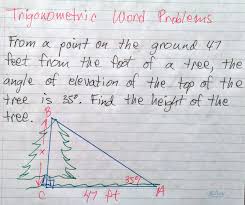 Trigonometric Word Problems
From a point on the ground 47
feet from the foot of a tree, the
angle of elevation of the top of the
tree is 35°. Find the height of the
tree.
B
x
35°
C
47 ft
A